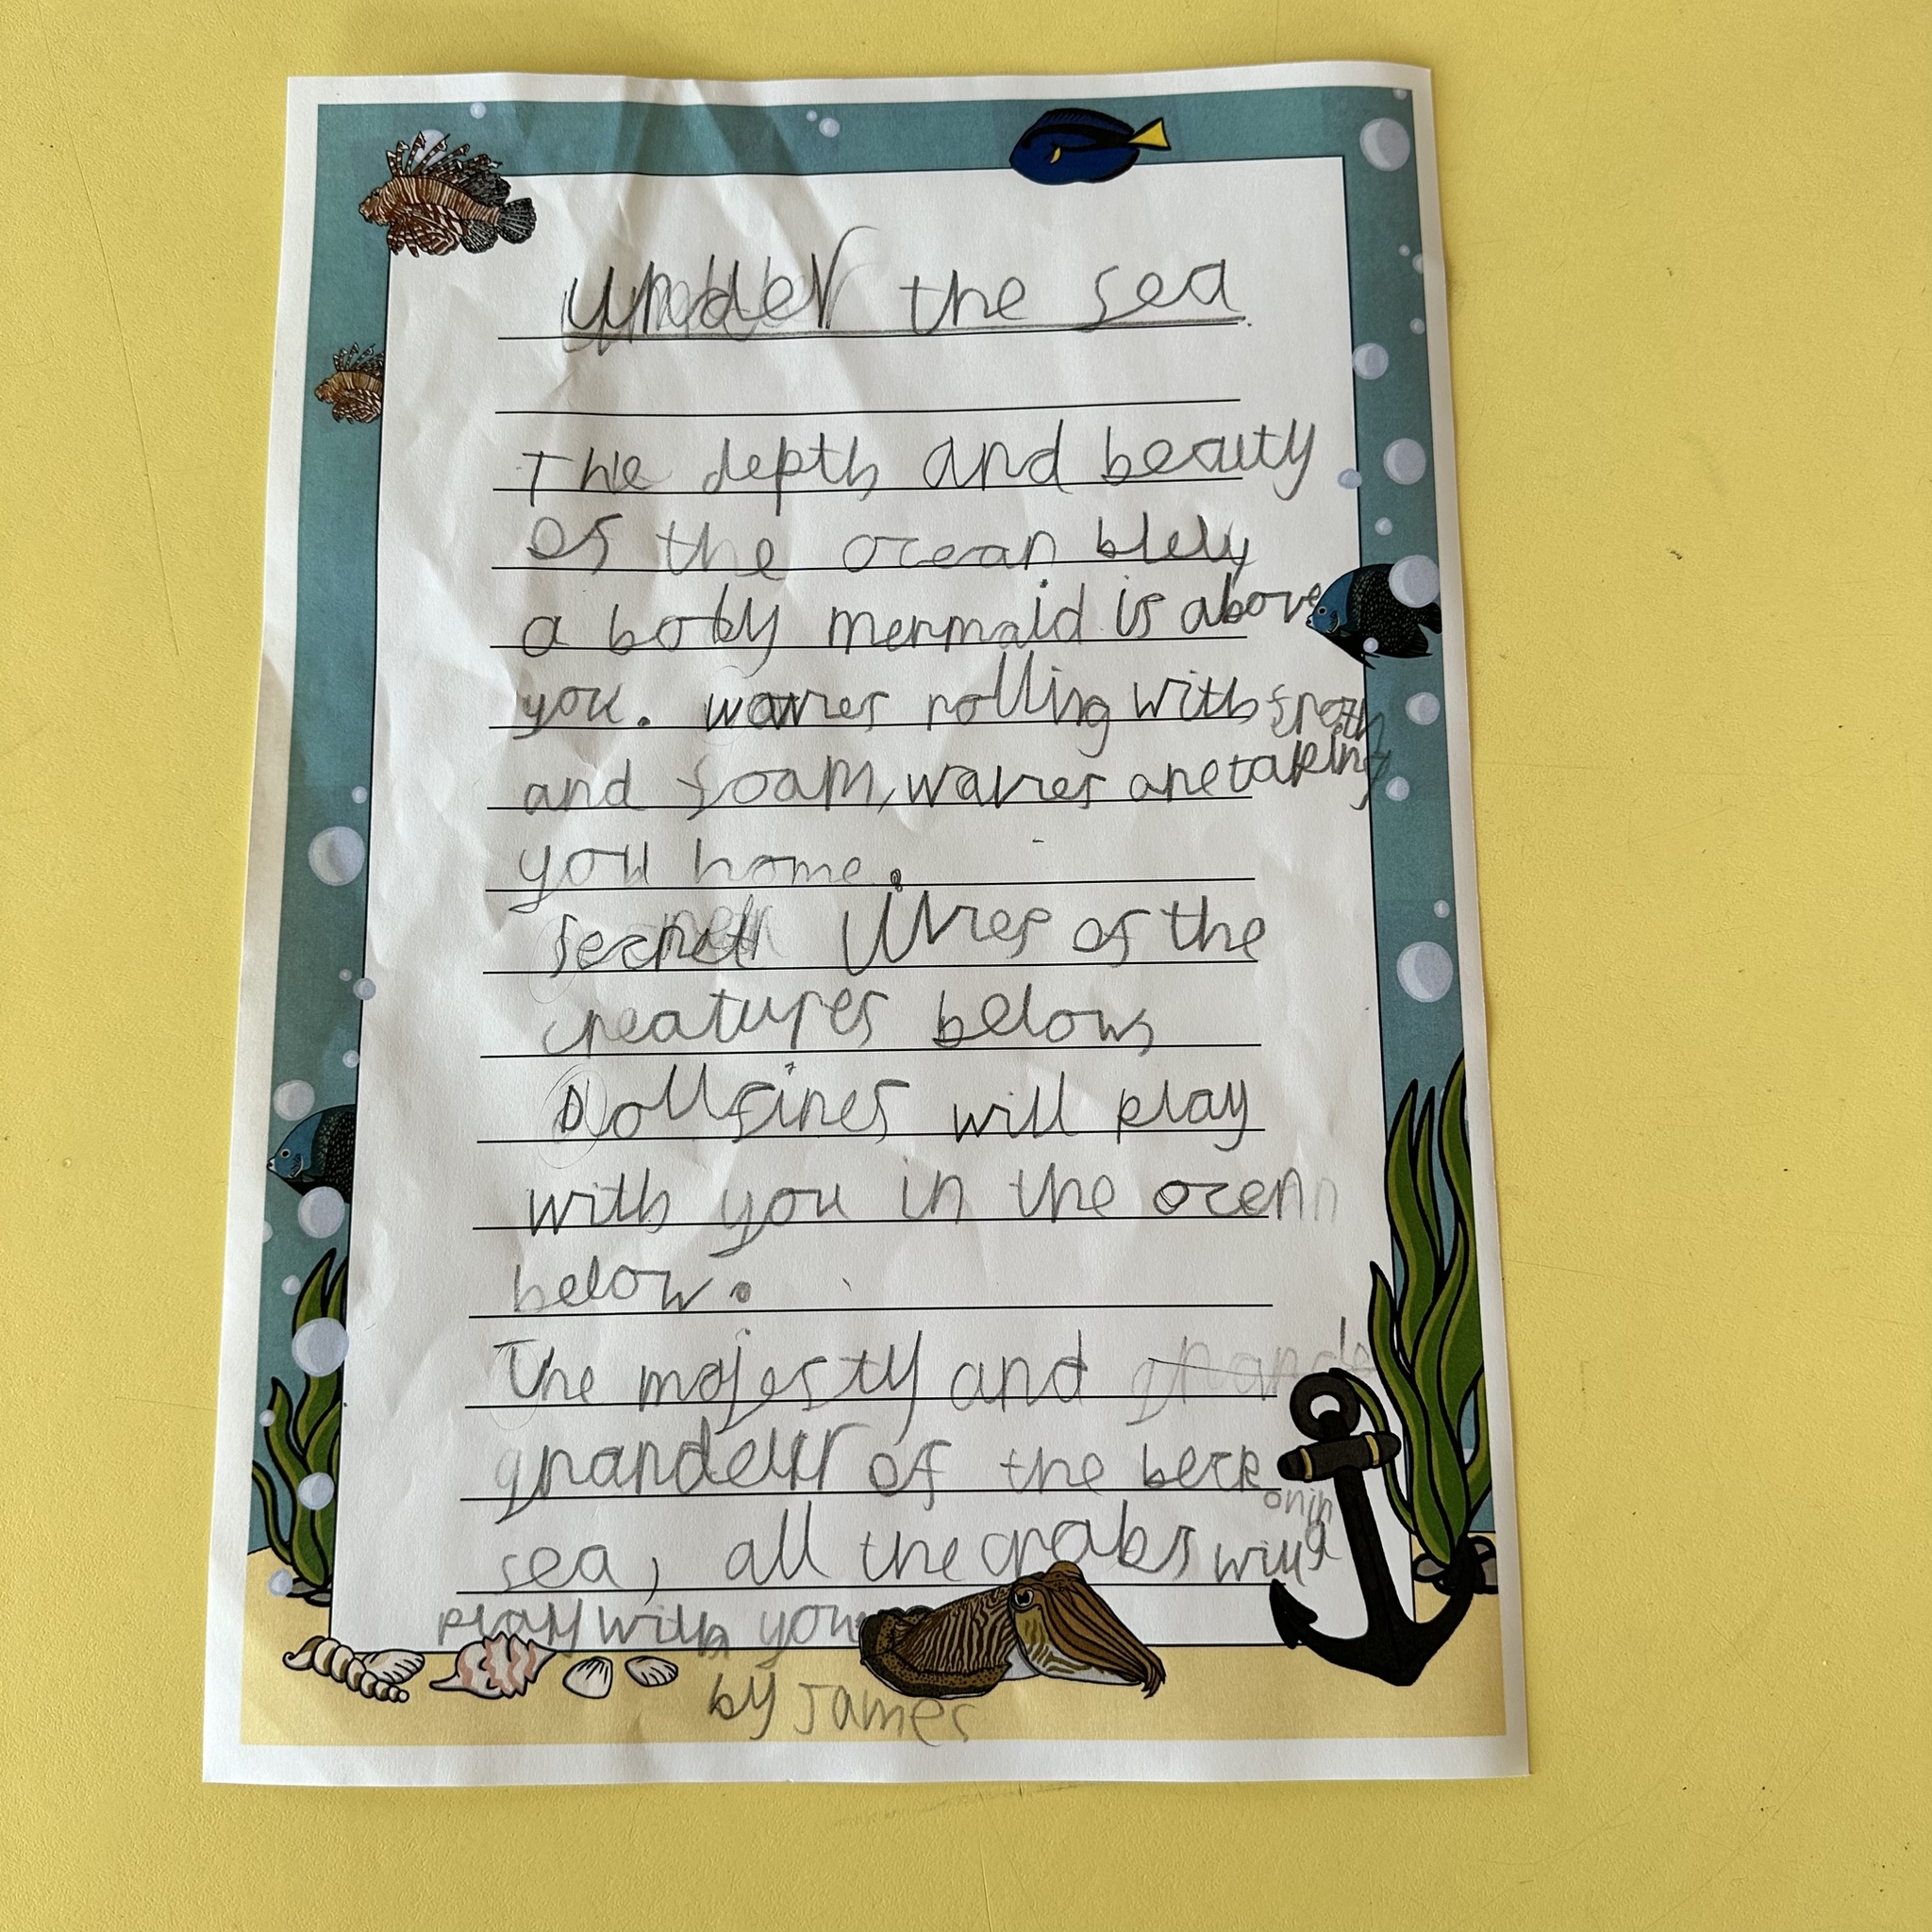 under the sea
The depth and beauty
of the ocean bluy
a body mermaid is above
you. waves rolling with froth
and foam, waves are taking
you home.
secret lives of the
creatures below
Dollfines will play
with you in the ocenn
below.
The majesty and
grandeur of the beck
oning
sea, all the crabs will
play with you
by James